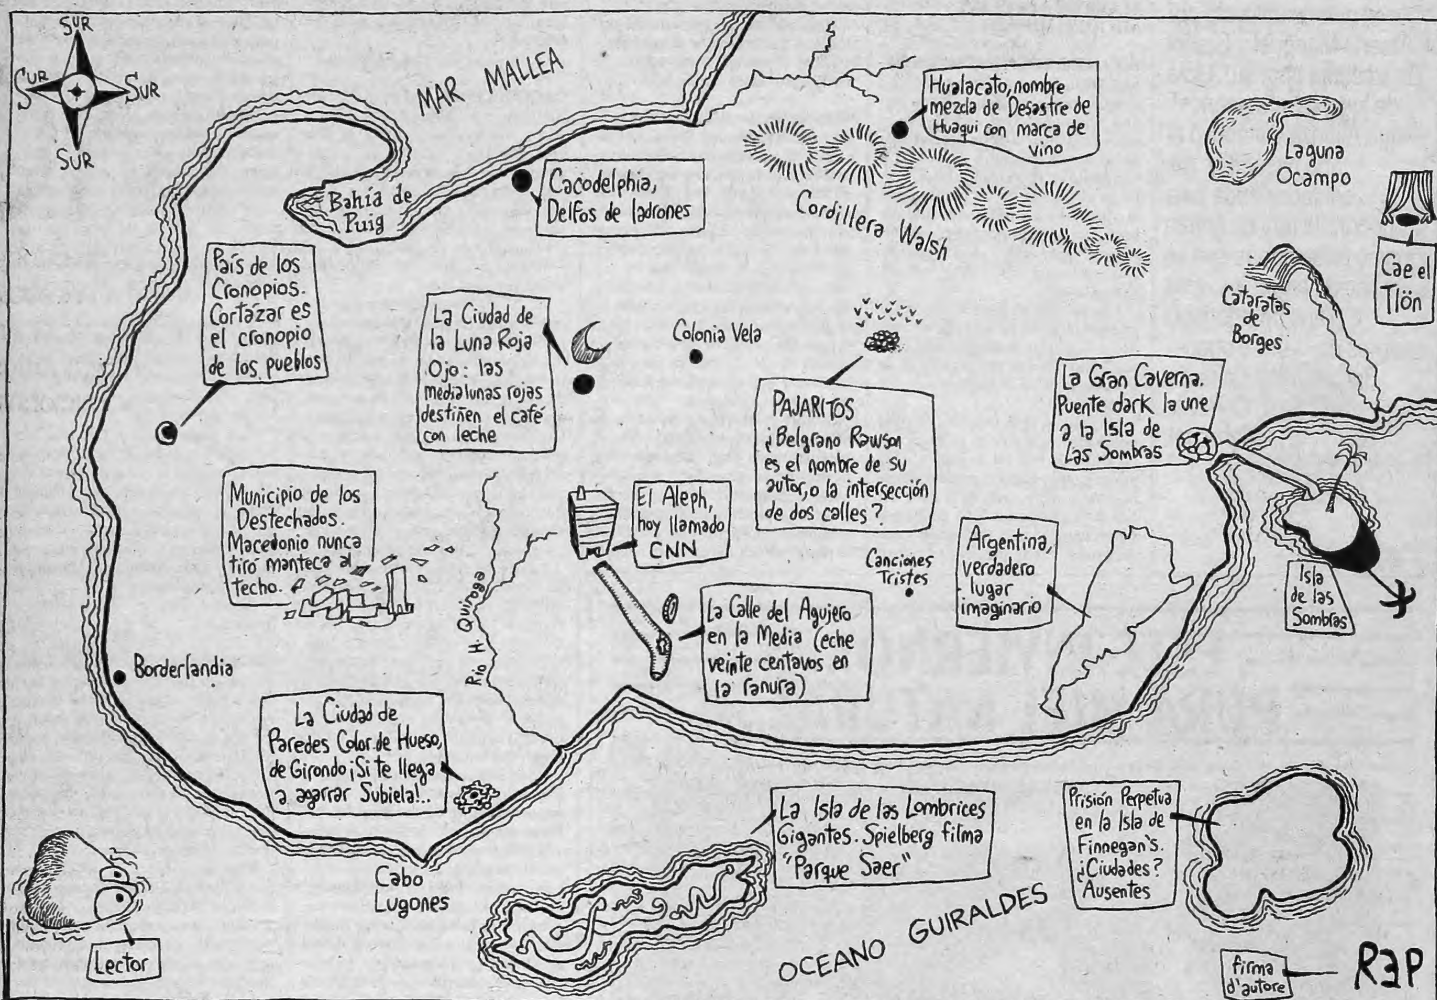 SUR
SUR
SUR
SUR
MAR MALLEA
Hualacato, nombre
mezcla de Desastre de
Huaqui con marca de
vino
Laguna
Ocampo
Bahía de
Puig
Cacodelphia,
Delfos de ladrones
Cordillera Walsh
Cae el
Tlön
País de los
Cronopios.
Cortázar es
el cronopio
de los pueblos
La Ciudad de
la Luna Roja
Ojo: las
medialunas rojas
destiñen el café
con leche
Colonia Vela
Cataratas
de
Borges
PAJARITOS
¿Belgrano Rawson
es el nombre de su
autor, o la intersección
de dos calles?
La Gran Caverna.
Puente dark la une
a la Isla de
Las Sombras
Municipio de los
Destechados.
Macedonio nunca
tiró manteca al
techo.
Río H. Quiroga
El Aleph,
hoy llamado
CNN
Canciones
Tristes
Argentina,
verdadero
lugar
imaginario
Isla
de las
Sombras
La Calle del Agujero
en la Media (eche
veinte centavos en
la ranura)
Borderlandia
La Ciudad de
Paredes Color de Hueso,
de Girondo ¡Si te llega
a agarrar Subiela!..
Cabo
Lugones
La Isla de las Lombrices
Gigantes. Spielberg filma
"Parque Saer"
Prisión Perpetua
en la Isla de
Finnegan's.
¿Ciudades?
Ausentes
OCEANO GUIRALDES
Lector
firma
d'autore
REP